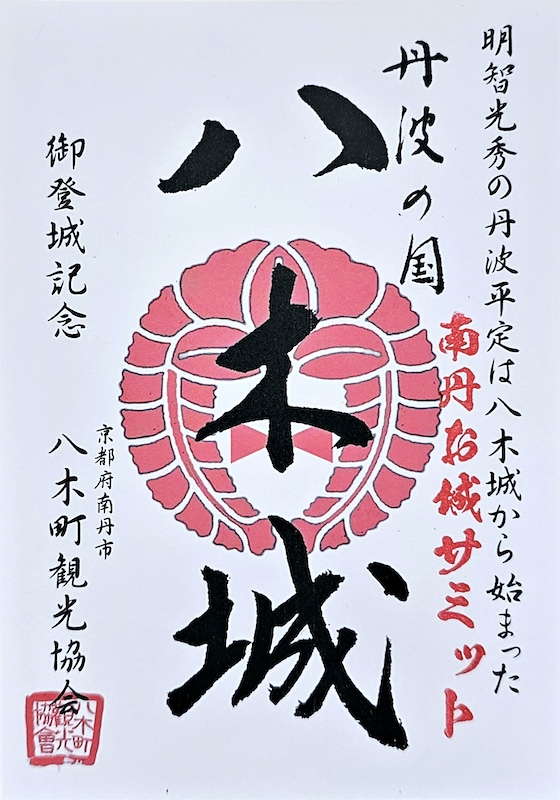 明智光秀の丹波平定は八木城から始まった
丹波の国
南丹お城サミット
八木城
御登城記念
京都府南丹市
八木町観光協会
八木町
観光
協會